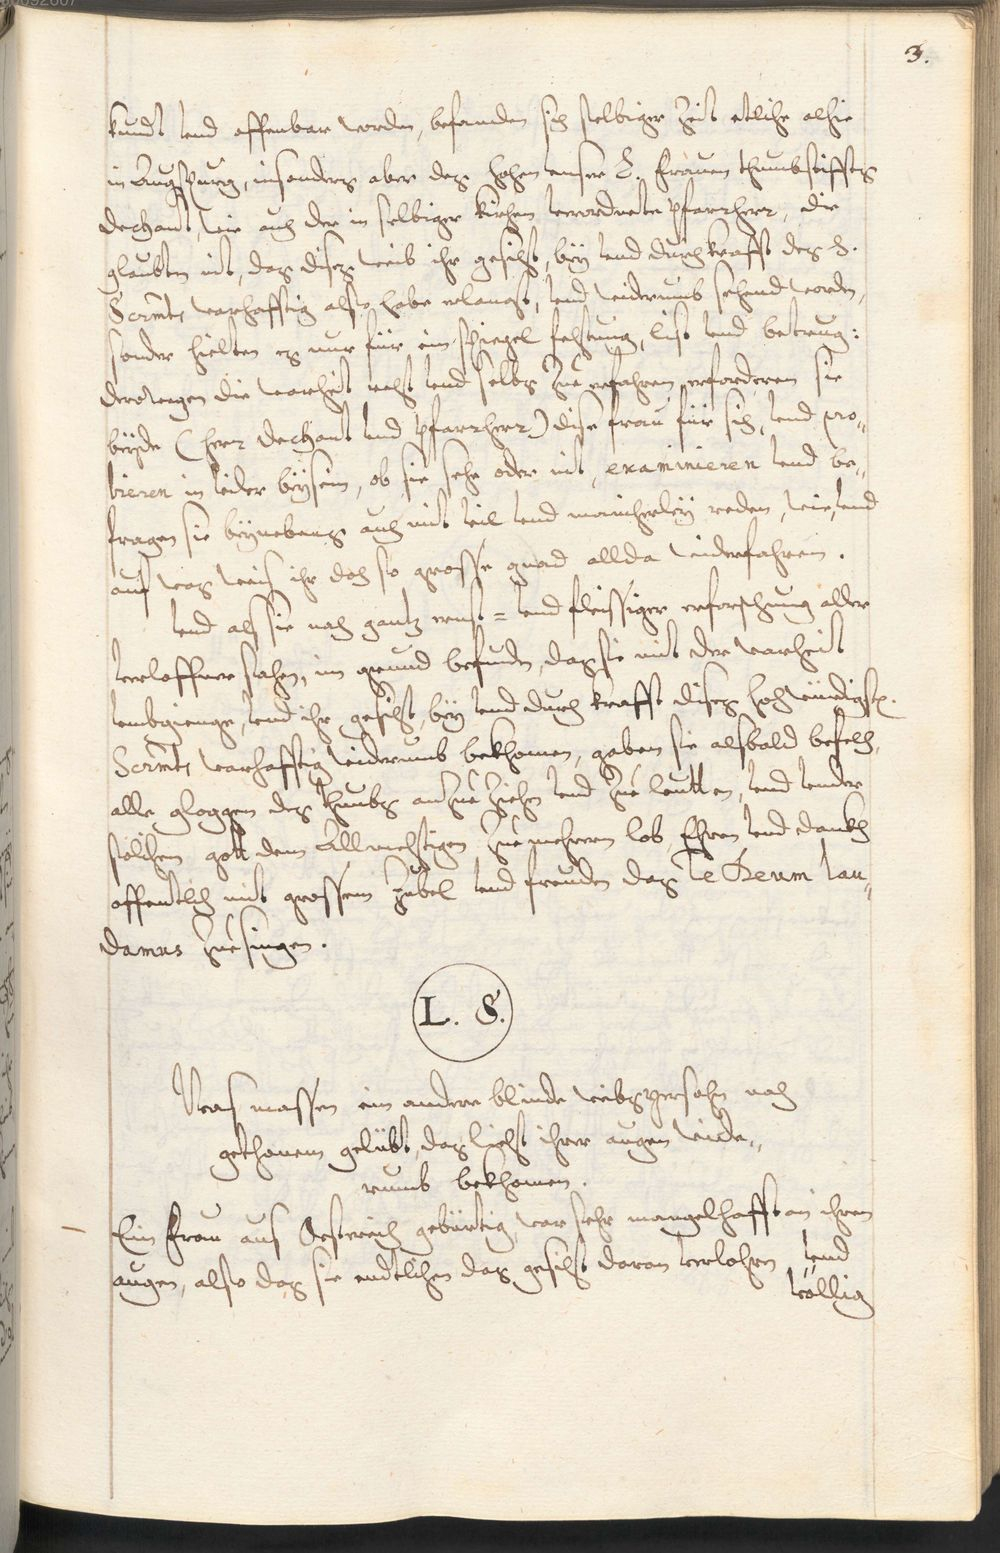 3.
kundt vnd offenbar worden, befanden sich selbiger Zeit etliche alhie
in Augspurg, insonders aber des hohen vnser L. Frauen thumbstiffts
dechant, wie auch der in selbiger kirchen verordnete Pfarrherr, die
glaubten nit, das dises weib ihr gesicht, bey vnd durch krafft des H.
Scrmts warhafftig also habe erlangt, vnd widerumb sehend worden,
sonder hielten es nur für ein spiegel fechtung, list vnd betrug:
derowegen die warheit recht vnd selbs Zue erfahren, erforderen sie
beyde (herr dechant vnd Pfarrherr) dise frau für sich, vnd pro„
bieren in vider beysein, ob sie sehe oder nit, examinieren vnd be„
fragen sie beynebens auch mit vil vnd mancherley reden, wie, vnd
auf was weis ihr doch so grosse gnad allda widerfahren.
Vnd als sie nach gantz ernst= vnd fleissiger erforschung aller
verloffner sachen, im grund befunden, das sie mit der warheit
vmbgienge, vnd ihr gesicht, bey vnd durch krafft dises hochwürdigst.
Scrmts warhafftig widerumb bekhomen, gaben sie alsbald befelch,
alle gloggen des thumbs an Zue Ziehen vnd Zue leutten, vnd vnder
solchem gott dem Allmechtigen Zue mehrerm lob, Ehren vnd danckh
offentlich mit grossem Jubel vnd freuden das Te Deum lau„
damus Zue singen.
L. S.
Was massen ein andere blinde weibspersohn nach
gethonem gelübt, das liecht ihrer augen wide„
rumb bekhomen.
Ein frau aus Osterreich gebürtig, war sehr mangelhafft an ihren
augen, also das sie endtlichen das gesicht daran verlohren vnd
völlig